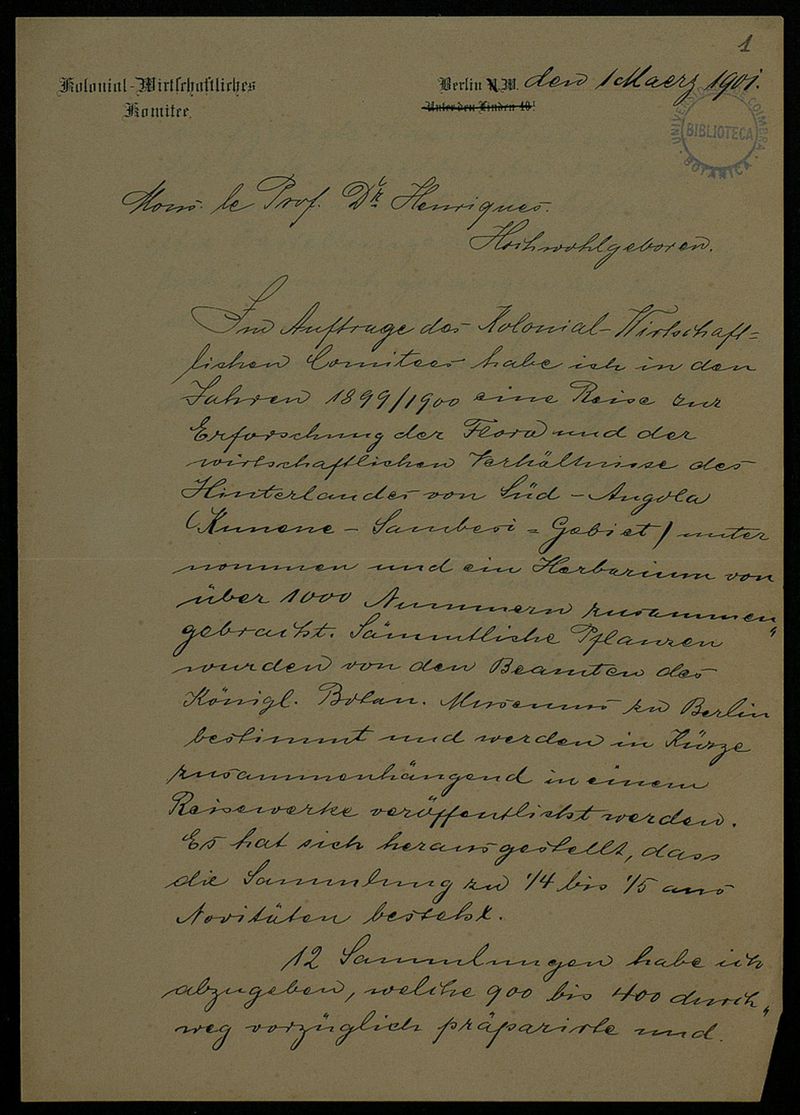 1
Kolonial-Wirtschaftliches
Komitee.
Berlin N.W. den 1 Maerz 1901.
Unter den Linden 40 I
UNIVERSIDADE DE COIMBRA
BIBLIOTECA
BOTANICA
Mons. le Prof. Dr. Henriques.
Hochwohlgeboren.
Im Auftrage des Kolonial-Wirtschaft=
lichen Comitees habe ich in den
Jahren 1899/1900 eine Reise zur
Erforschung der Flora und der
wirtschaftlichen Verhältnisse des
Hinterlandes von Süd-Angola
(Kunene-Sambesi=Gebiet) unter
nommen und ein Herbarium von
über 1000 Nummern zusammen"
gebracht. Sämmtliche Pflanzen
wurden von den Beamten des
Königl. Botan. Museums zu Berlin
bestimmt und werden in Kürze
zusammenhängend in einem
Reisewerke veröffentlicht werden.
Es hat sich herausgestellt, dass
die Sammlung zu 1/4 bis 1/5 aus
Novitäten besteht.
12 Sammlungen habe ich
abzugeben, welche 900 bis 400 durch"
weg vorzüglich präparirte und